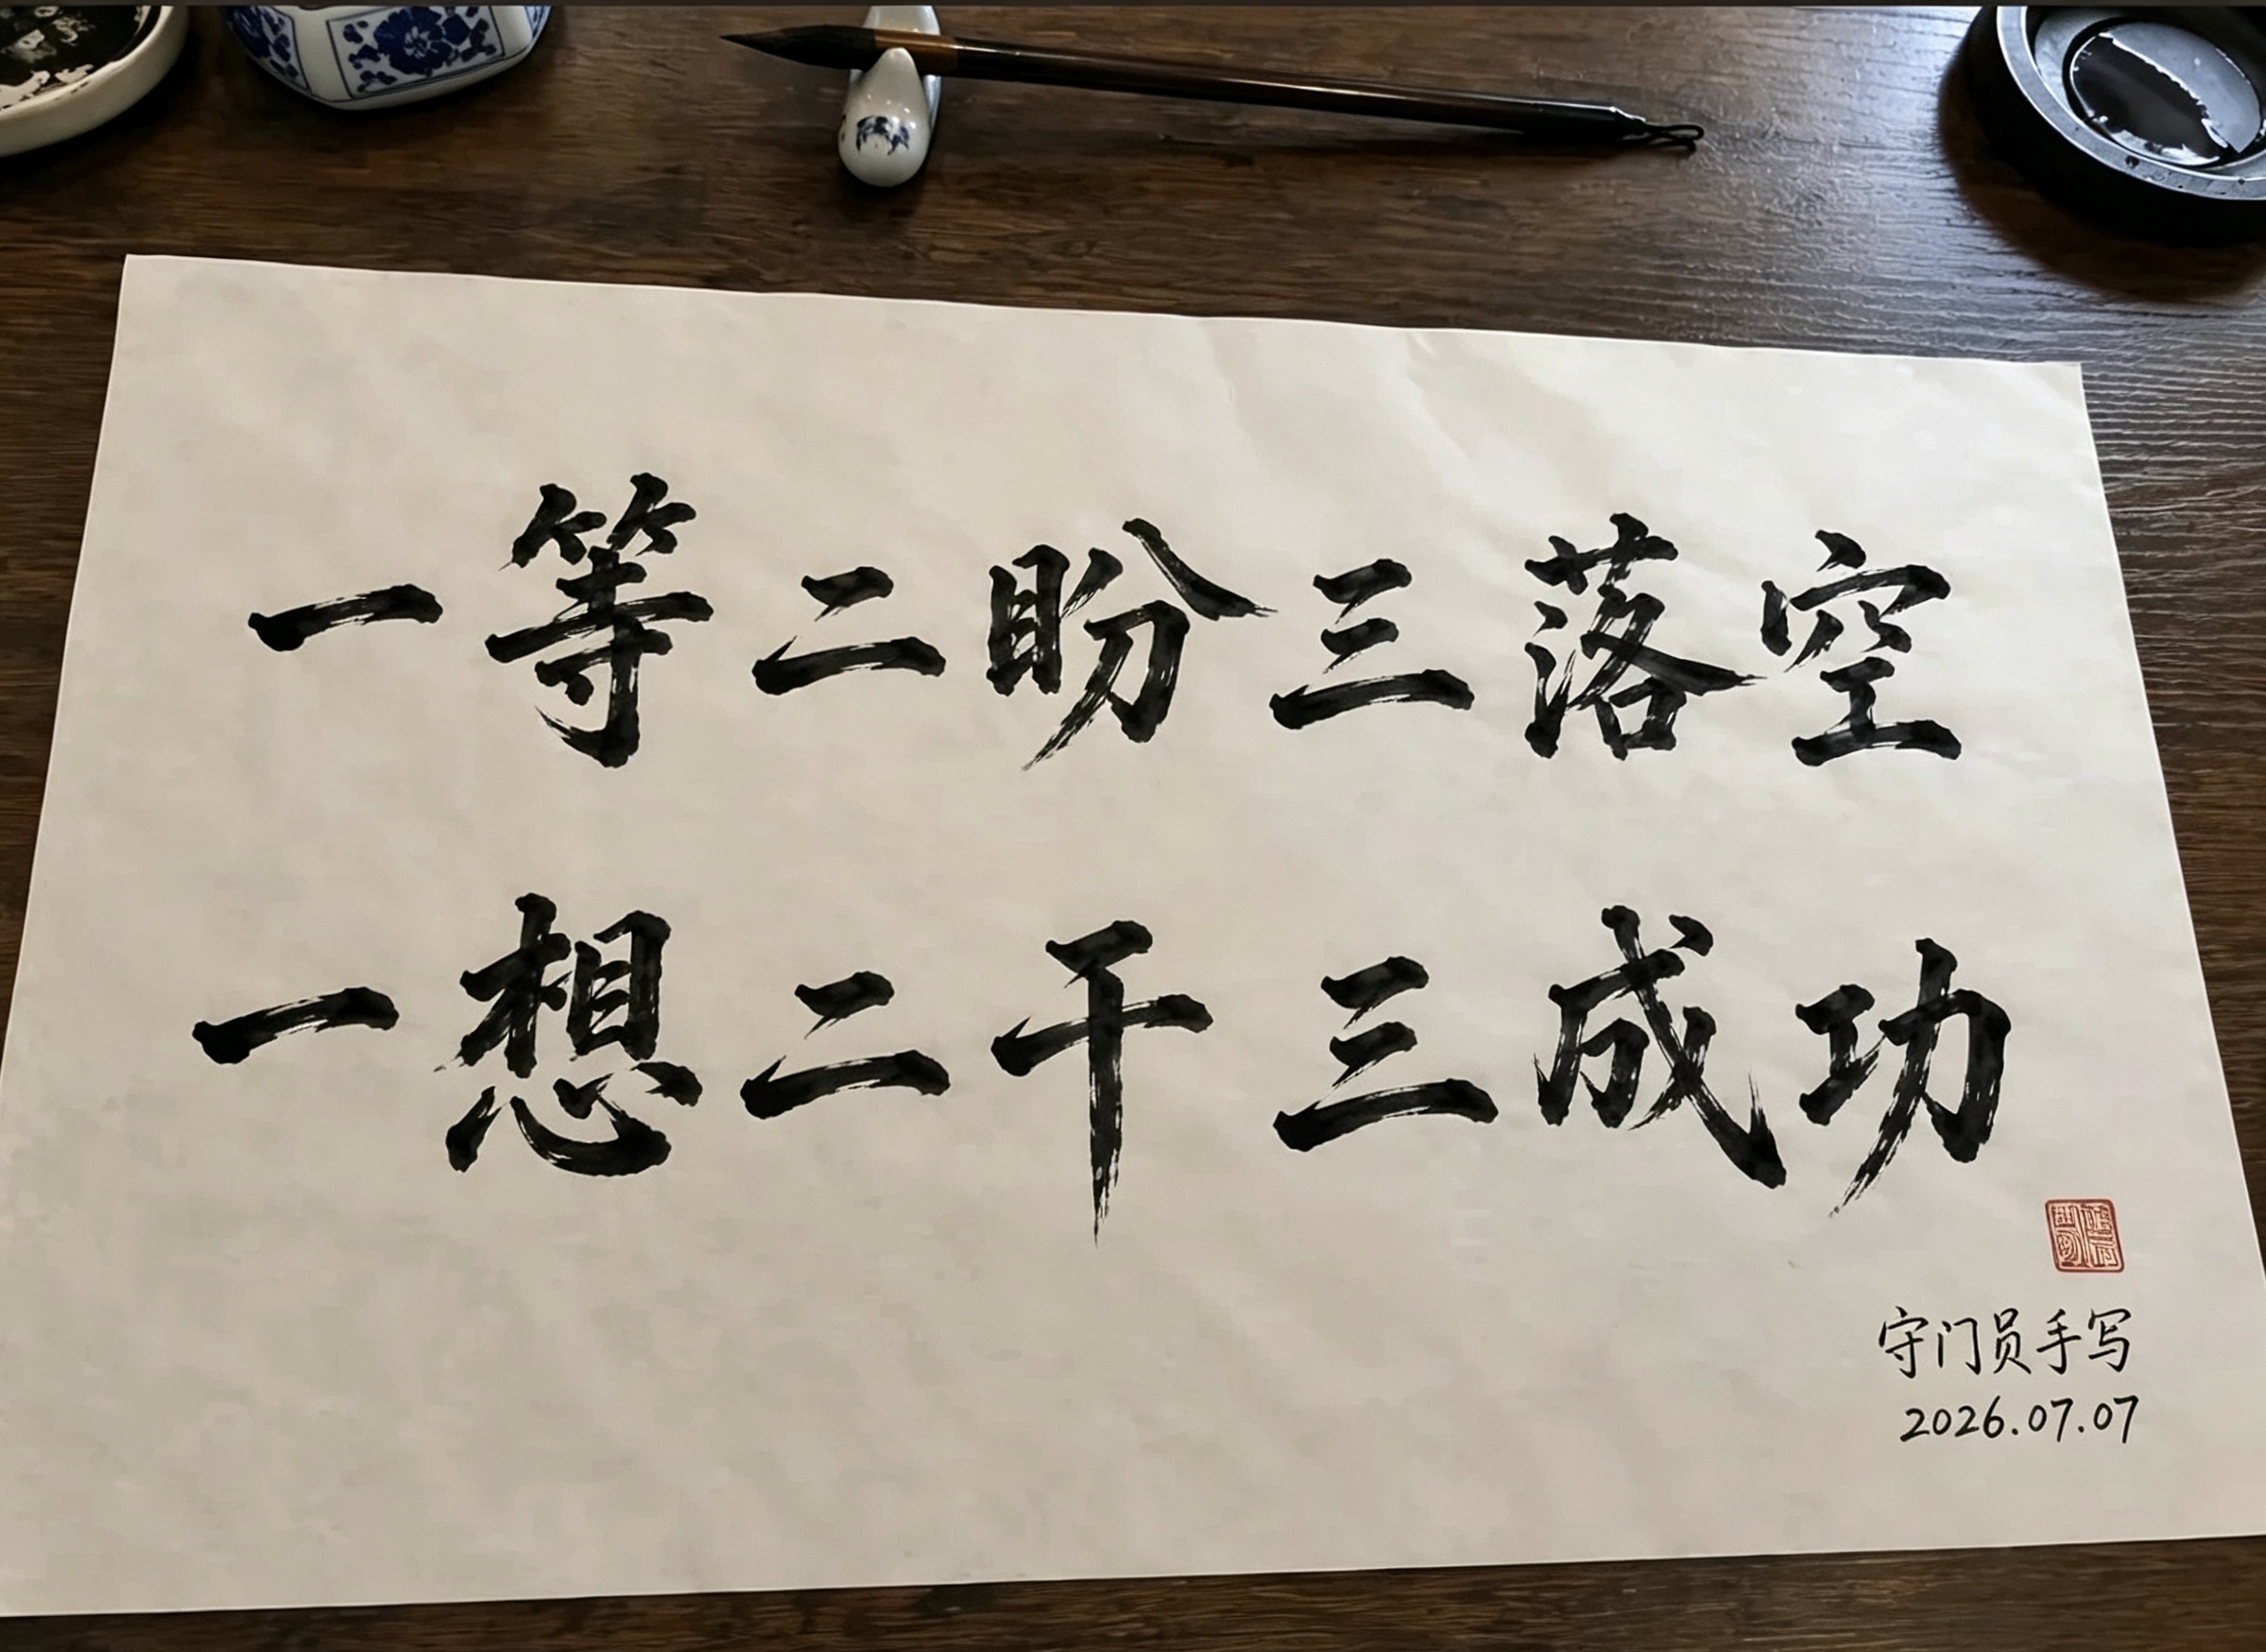 一等二盼三落空
一想二干三成功
守门员手写
2026.07.07